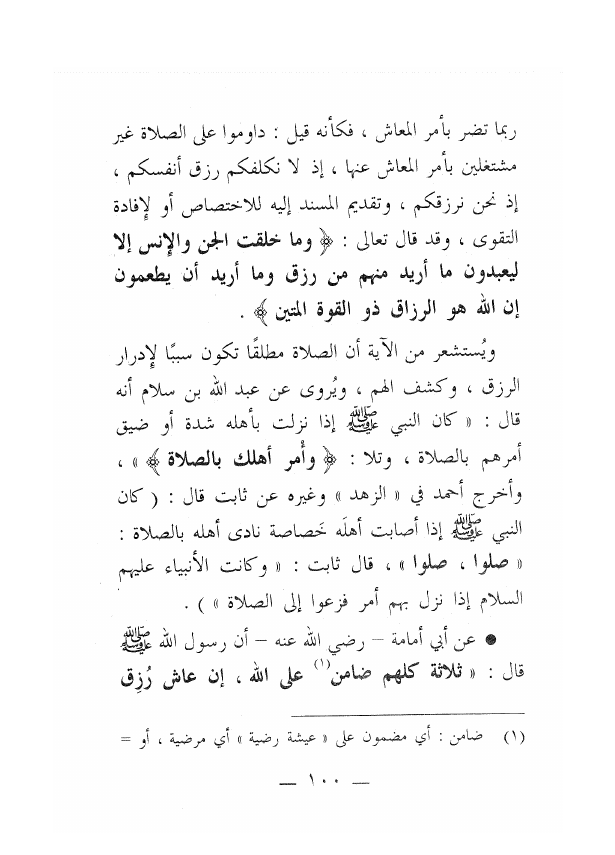 ربما تضر بأمر المعاش ، فكأنه قيل : داوموا على الصلاة غير
مشتغلين بأمر المعاش عنها ، إذ لا نكلفكم رزق أنفسكم ،
إذ نحن نرزقكم ، وتقديم المسند إليه للاختصاص أو لإفادة
التقوى ، وقد قال تعالى : ﴿ وما خلقت الجن والإنس إلا
ليعبدون ما أريد منهم من رزق وما أريد أن يطعمون
إن الله هو الرزاق ذو القوة المتين ﴾ .
ويُستشعر من الآية أن الصلاة مطلقًا تكون سببًا لإدرار
الرزق ، وكشف الهم ، ويُروى عن عبد الله بن سلام أنه
قال : « كان النبي ﷺ إذا نزلت بأهله شدة أو ضيق
أمرهم بالصلاة ، وتلا : ﴿ وأْمر أهلك بالصلاة ﴾ » ،
وأخرج أحمد في « الزهد » وغيره عن ثابت قال : ( كان
النبي ﷺ إذا أصابت أهلَه خَصاصة نادى أهله بالصلاة :
« صلوا ، صلوا » ، قال ثابت : « وكانت الأنبياء عليهم
السلام إذا نزل بهم أمر فزعوا إلى الصلاة » ) .
● عن أبي أمامة – رضي الله عنه – أن رسول الله ﷺ
قال : « ثلاثة كلهم ضامن(١) على الله ، إن عاش رُزِق
(١) ضامن : أي مضمون على « عيشة رضية » أي مرضية ، أو =
— ١٠٠ —